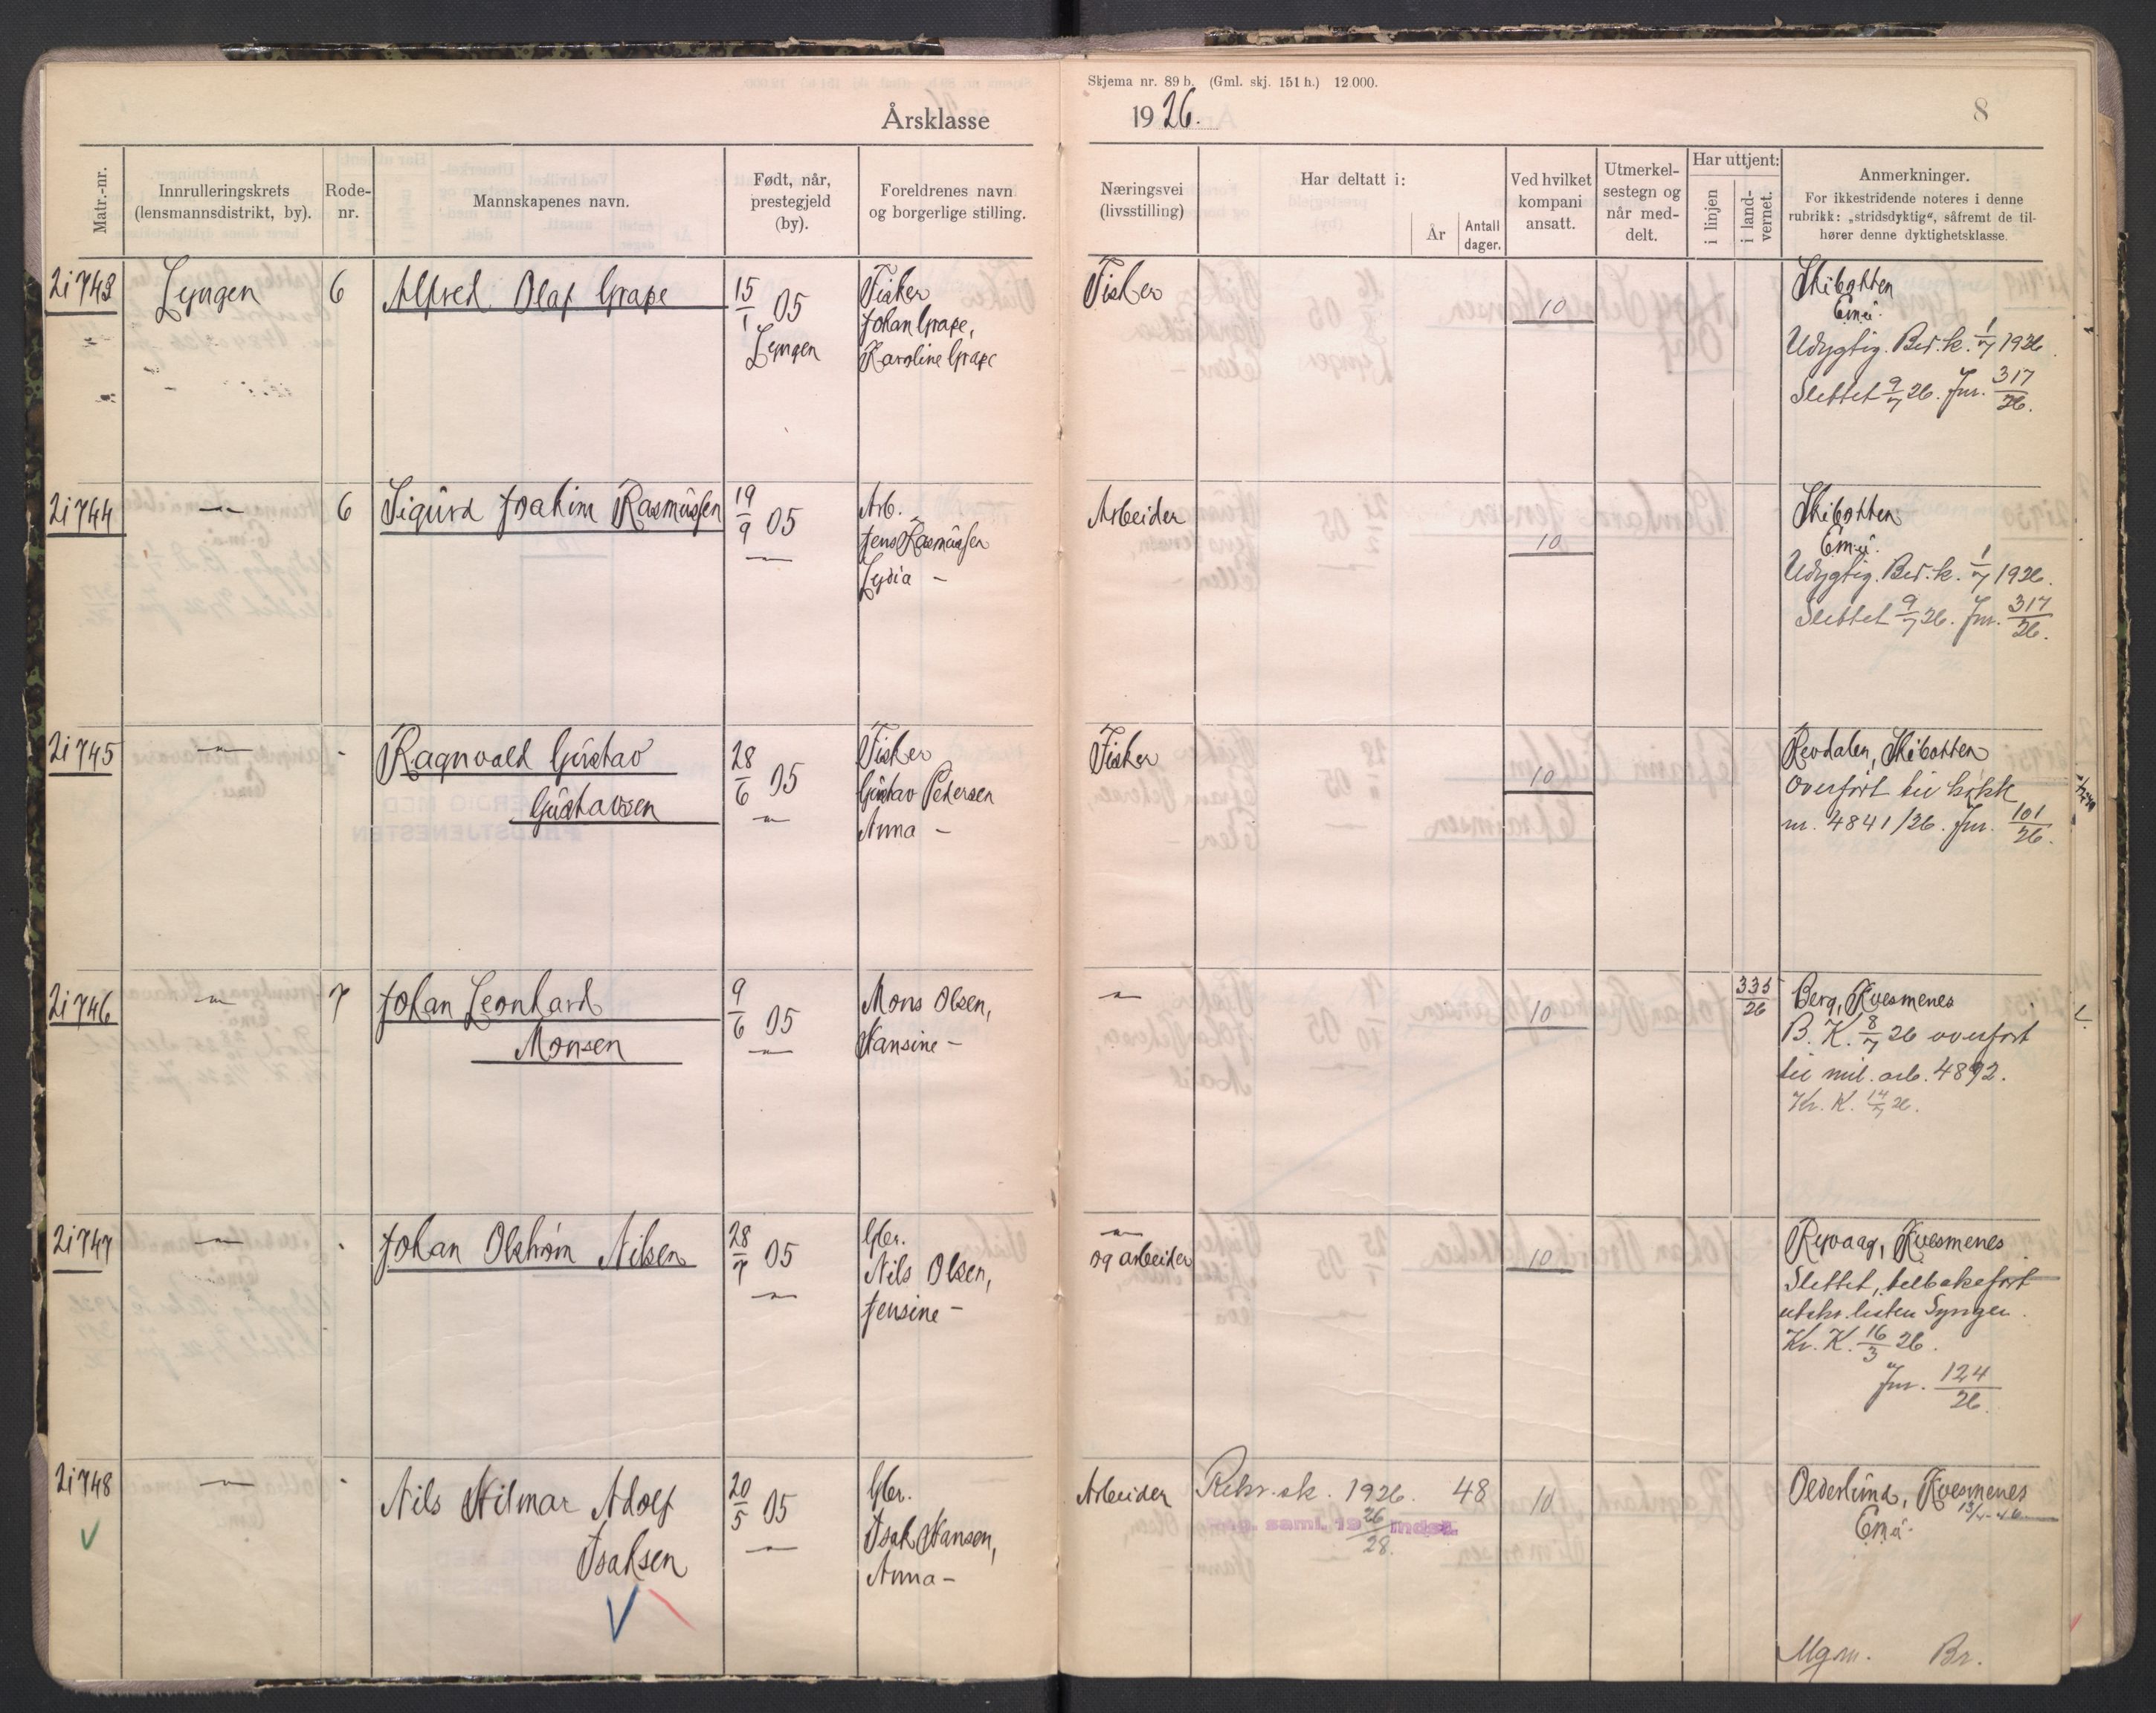 Skjema nr. 89 b. (Gml. skj. 151 h.) 12.000.
Årsklasse 1926. 8
Matr.-nr.
Innrulleringskrets (lensmannsdistrikt, by).
Rode-nr.
Mannskapenes navn.
Født, når, prestegjeld (by).
Foreldrenes navn og borgerlige stilling.
Næringsvei (livsstilling)
Har deltatt i:
År
Antall dager.
Ved hvilket kompani ansatt.
Utmerkel-sestegn og når med-delt.
Har uttjent:
i linjen
i land-vernet.
Anmerkninger.
For ikkestridende noteres i denne rubrikk: „stridsdyktig“, såfremt de til-hører denne dyktighetsklasse.
21743 Lyngen 6 Alfred Olaf Grape 15/1 05 Lyngen
Fisker
Johan Grape,
Karoline Grape
Fisker 10
Skibotten
Emä.
Udygtig. Bes. k. 1/7 1926.
Slettet 9/7 26. Jnr. 317/26.
21744 — 6 Sigurd Joakim Rasmussen 19/9 05 —
Arb.
Jens Rasmussen
Lydia —
Arbeider 10
Skibotten
Emä.
Udygtig. Bes. k. 1/7 1926.
Slettet 9/7 26. Jnr. 317/26.
21745 — - Ragnvald Gustav
Gustavsen
28/6 05 —
Fisker
Gustav Petersen
Anna —
Fisker 10
Skibotten
Overført til
nr. 4841/26. Jnr. 101/26.
21746 — 7 Johan Leonhard
Monsen
9/6 05 —
Mons Olsen,
Hansine —
— 10 335/26
Berg, Kvesmenes
B. K. 8/7 26 overført
til mil. arb. 4892.
Kr. K. 14/7 26.
21747 — - Johan Olstrøm Nilsen 28/7 05 —
Gbr.
Nils Olsen,
Jensine —
—
og arbeider 10
Ryvaag, Kvesmenes
Slettet, tilbakeført
utskr. listen Lyngen.
Kr. K. 16/3 26.
Jnr. 124/26.
21748 — - Nils Hilmar Adolf
Isaksen
20/5 05 —
Gbr.
Isak Hansen,
Anna —
Arbeider Rekr. sk. 1926. 48 10
saml. 19 26/28
Olderlund, Kvesmenes
Emä.
Mgm. Br.